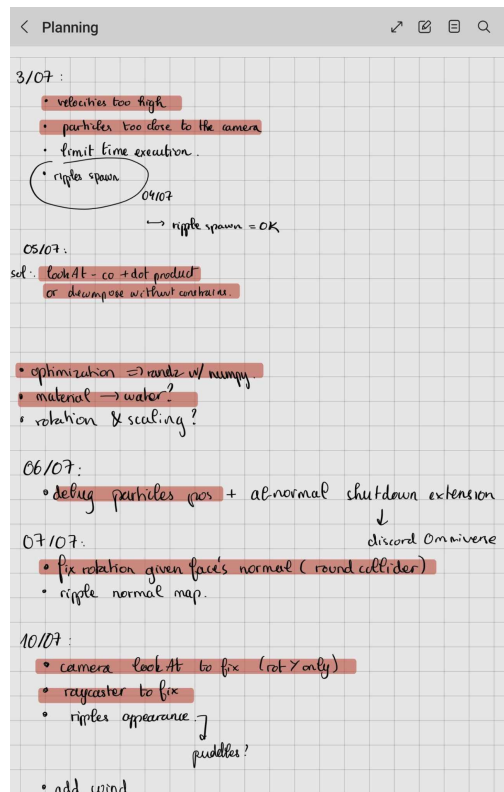 Planning
3/07 :
• velocities too high
• particles too close to the camera
• limit time execution.
• ripples spawn
04/07
→ ripple spawn = OK
05/07:
sol : lookAt - co + dot product
or decompose without constrains.
• optimization => randz w/ numpy.
• material → water?
• rotation & scaling?
06/07:
• debug particles pos + abnormal shutdown extension
↓
discord Omniverse
07/07:
• fix rotation given face's normal ( round collider)
• ripple normal map.
10/07:
• camera lookAt to fix (rot Y only)
• raycaster to fix
• ripples appearance.
puddles?
• add wind